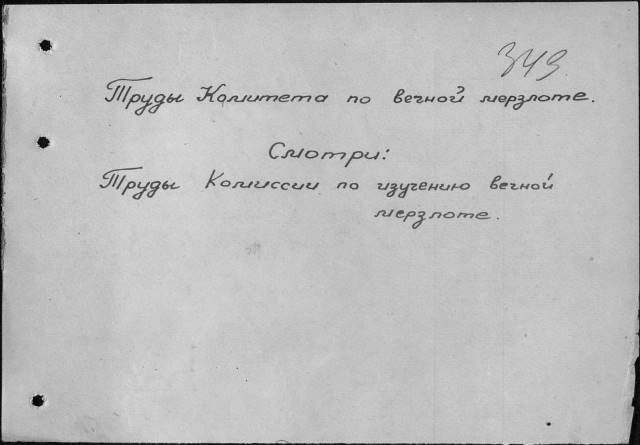 349
Труды Комитета по вечной мерзлоте.
Смотри:
Труды Комиссии по изучению вечной
мерзлоте.